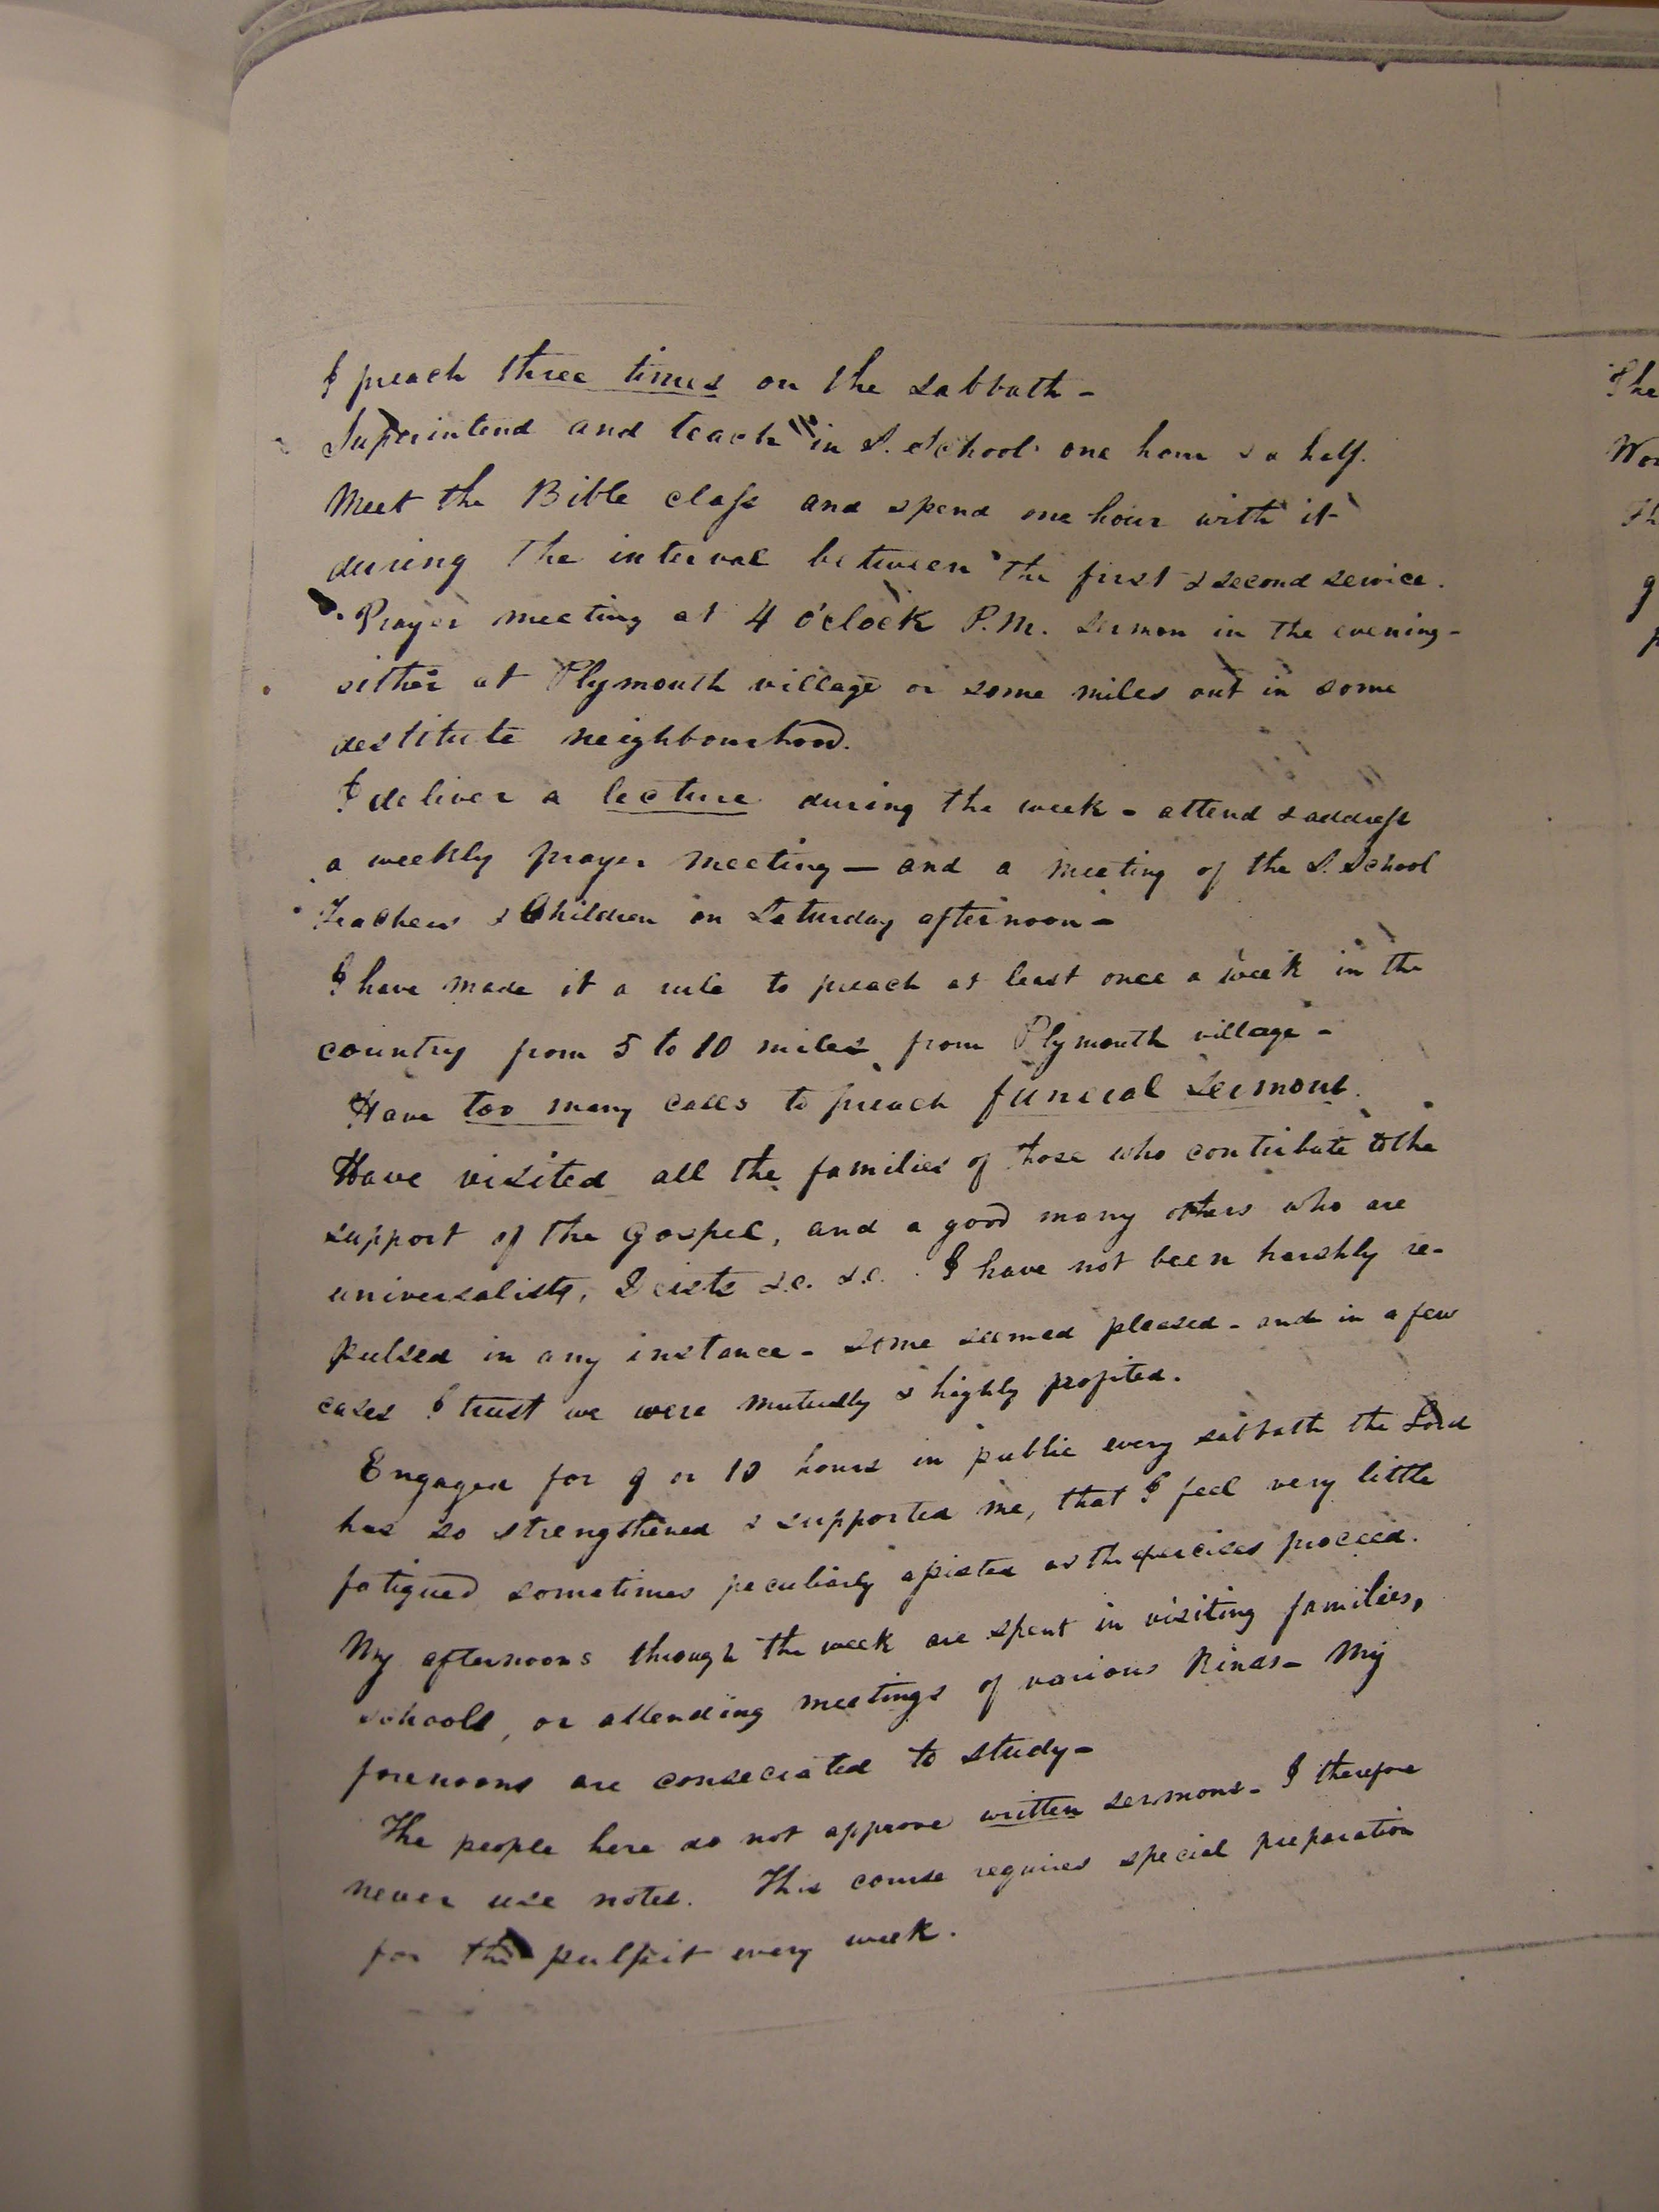 I preach three times on the sabbath -
Superintend and teach in S. School one hour & a half.
Meet the Bible class and spend one hour with it
during the interval between the first & second service.
Prayer meeting at 4 o'clock P.M. Sermon in the evening -
either at Plymouth village or some miles out in some
destitute neighbourhood.
I deliver a lecture during the week - attend & address
a weekly prayer meeting — and a meeting of the S. School
Teachers & Children on Saturday afternoon -
I have made it a rule to preach at least once a week in the
country from 5 to 10 miles from Plymouth village -
Have too many calls to preach funeral sermons.
Have visited all the families of those who contribute to the
support of the Gospel, and a good many others who are
universalists, Deists &.c. &.c. I have not been harshly re-
pulsed in any instance - some seemed pleased - and in a few
cases I trust we were mutually & highly profited.
Engaged for 9 or 10 hours in public every sabbath the Lord
has so strengthened & supported me, that I feel very little
fatigued sometimes peculiarly assisted as the exercises proceed.
My afternoons through the week are spent in visiting families,
schools, or attending meetings of various kinds - My
forenoons are consecrated to study -
The people here do not approve written sermons - I therefore
never use notes. This course requires special preparation
for the pulpit every week.
The